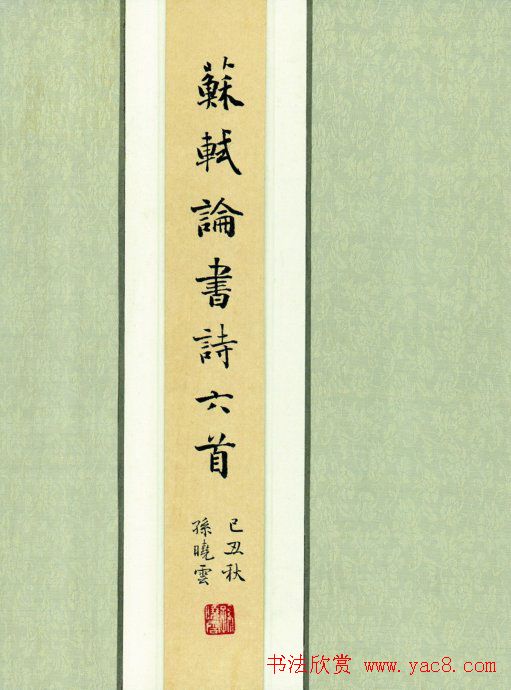 蘇軾論書詩六首
己丑秋
孫曉雲
书法欣赏 www.yac8.com